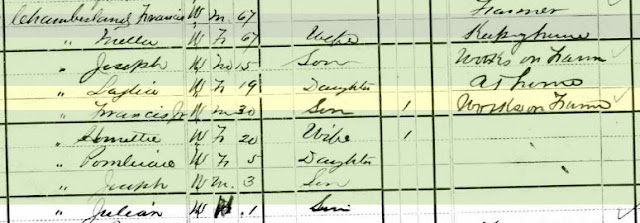 Chamberland Francis W M 67 Farmer
" W F 67 Wife Keeping house
" Joseph W M 15 Son Works on Farm
" W F 19 Daughter At home
" Francis Jr W M 30 Son 1 Works on Farm
" W F 20 Wife 1
" W F 5 Daughter
" Joseph W M 3 Son
" Julian W 1 Son